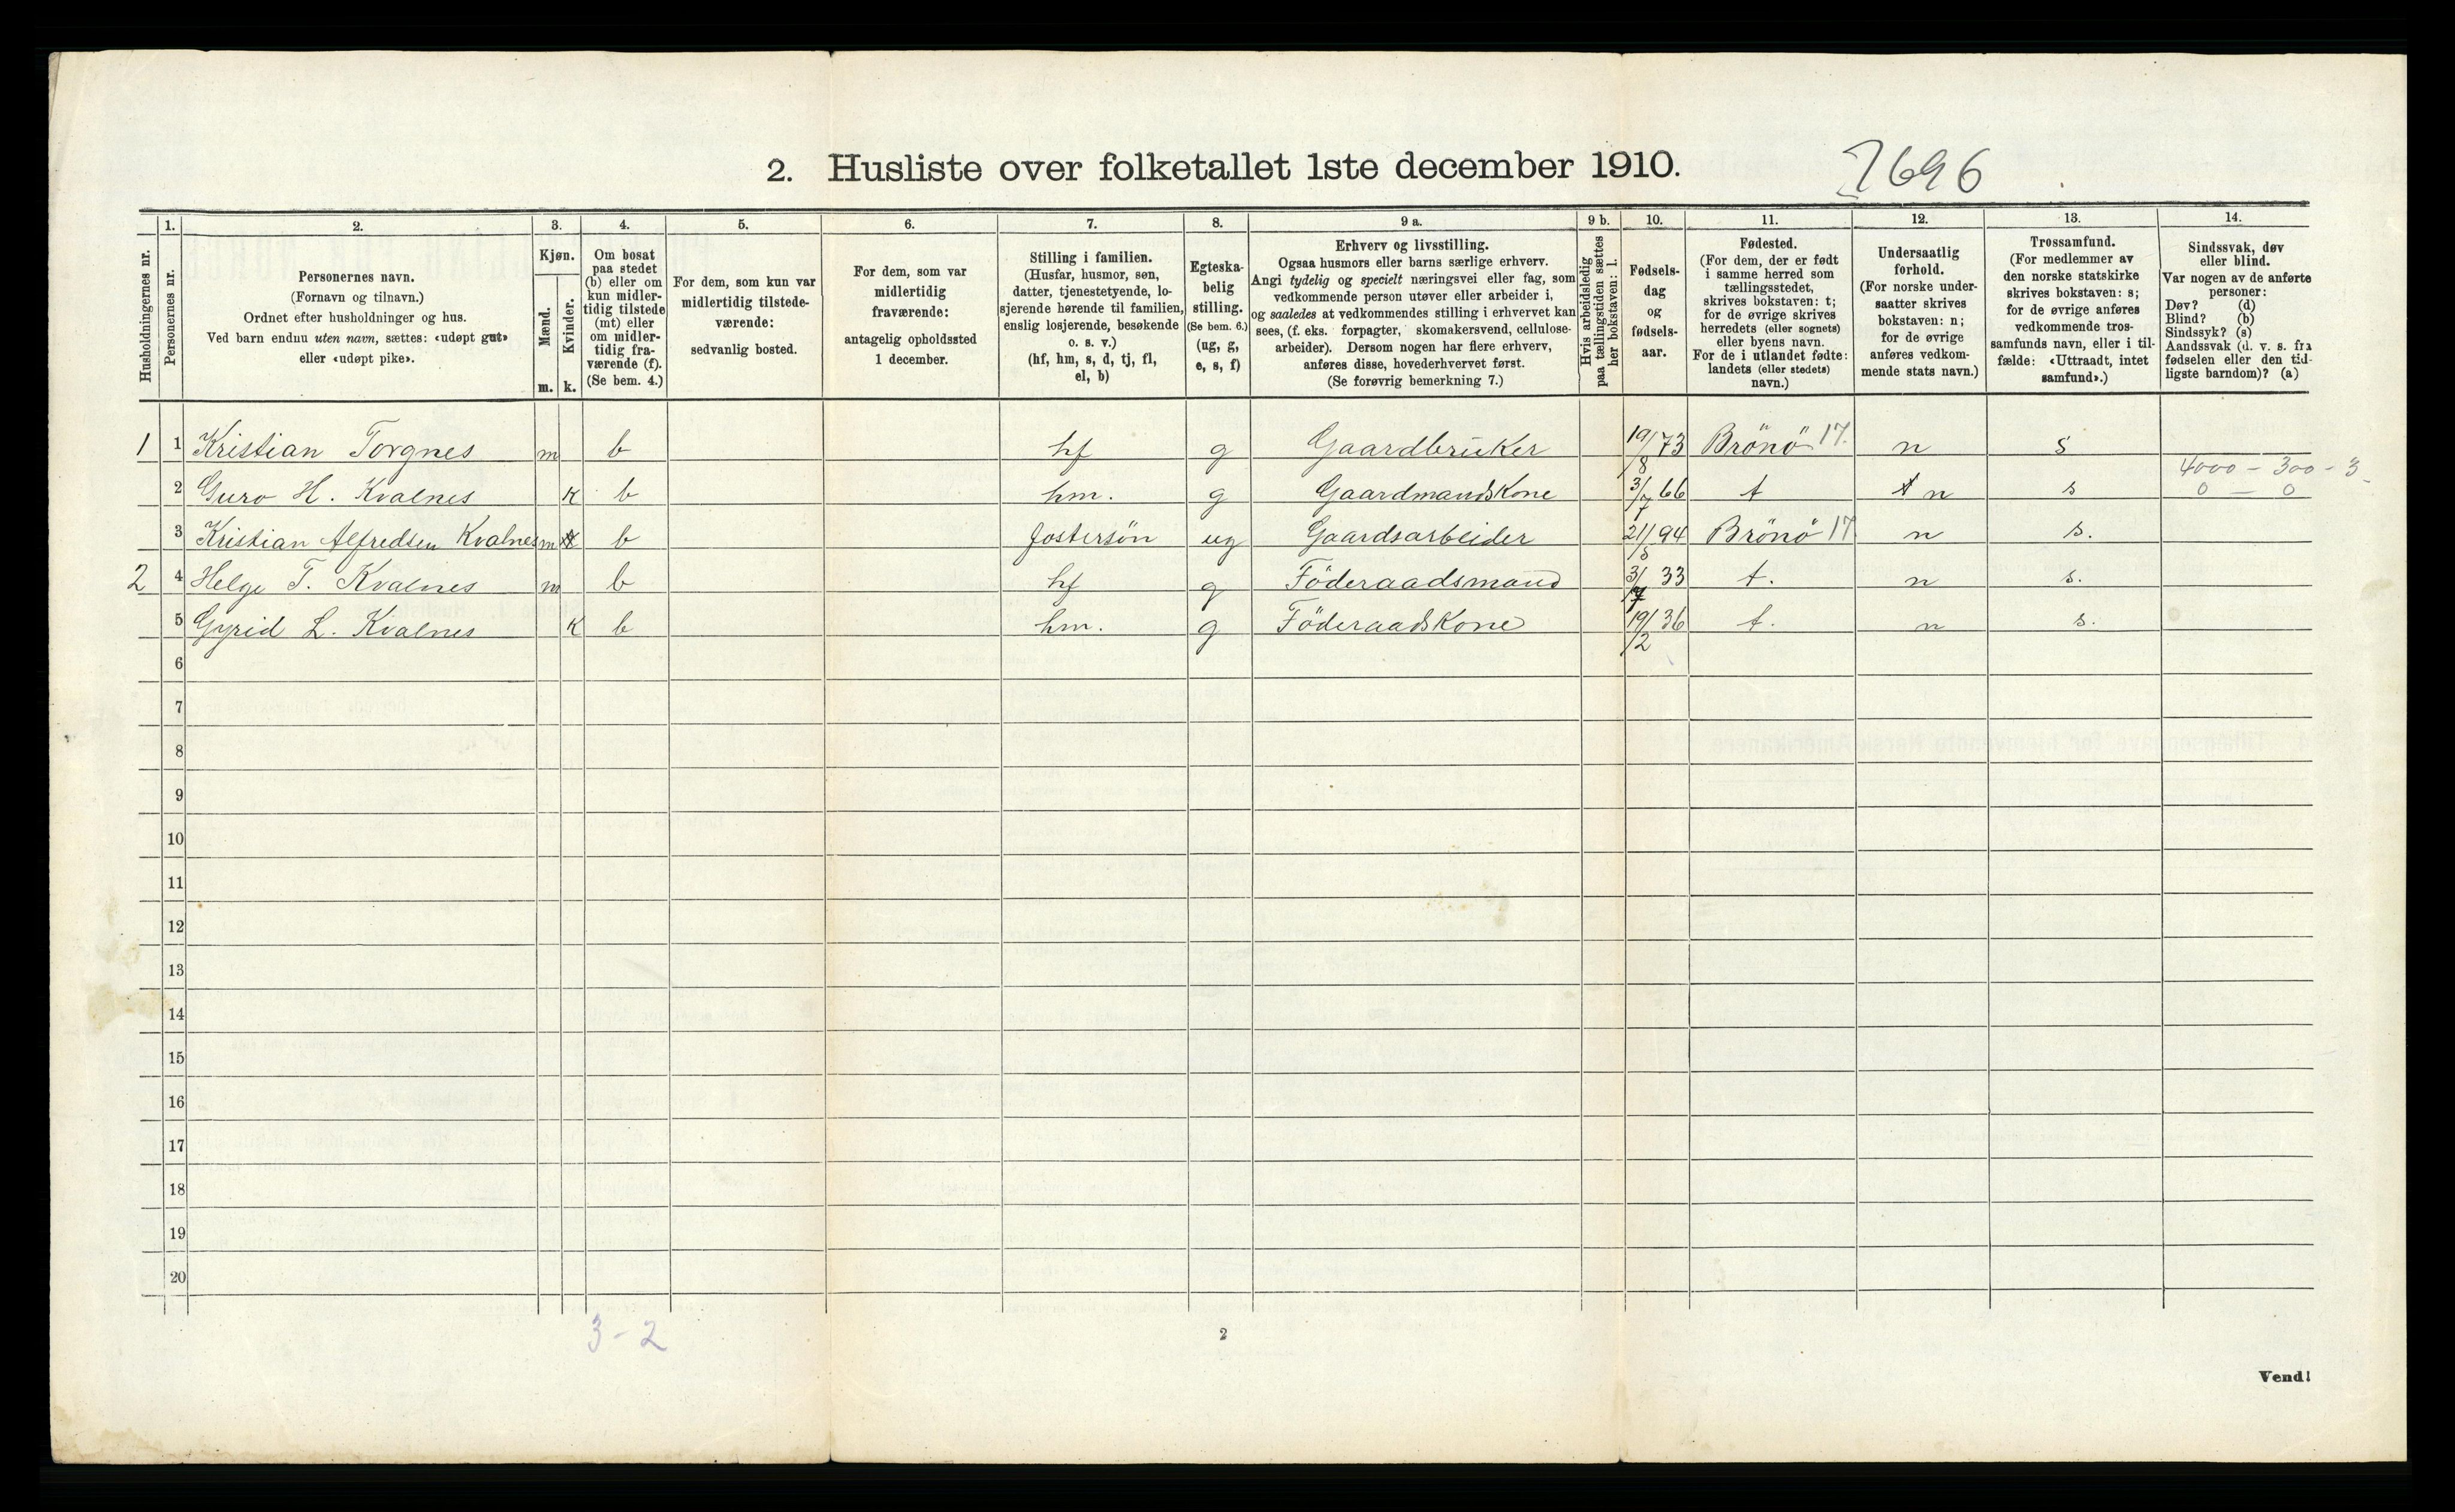 2. Husliste over folketallet 1ste december 1910.
Husholdningernes nr.
1.
Personernes nr.
2.
Personernes navn.
(Fornavn og tilnavn.)
Ordnet efter husholdninger og hus.
Ved barn endnu uten navn, sættes: «udøpt gut»
eller «udøpt pike».
3.
Kjøn.
Mænd.
Kvinder.
m. k.
4.
Om bosat
paa stedet
(b) eller om
kun midler-
tidig tilstede
(mt) eller
om midler-
tidig fra-
værende (f).
(Se bem. 4.)
5.
For dem, som kun var
midlertidig tilstede-
værende:
sedvanlig bosted.
6.
For dem, som var
midlertidig
fraværende:
antagelig opholdssted
1 december.
7.
Stilling i familien.
(Husfar, husmor, søn,
datter, tjenestetyende, lo-
sjerende hørende til familien,
enslig losjerende, besøkende
o. s. v.)
(hf, hm, s, d, tj, fl,
el, b)
8.
Egteska-
belig
stilling.
(Se bem. 6.)
(ug, g,
e, s, f)
9 a.
Erhverv og livsstilling.
Ogsaa husmors eller barns særlige erhverv.
Angi tydelig og specielt næringsvei eller fag, som
vedkommende person utøver eller arbeider i,
og saaledes at vedkommendes stilling i erhvervet kan
sees, (f. eks. forpagter, skomakersvend, cellulose-
arbeider). Dersom nogen har flere erhverv,
anføres disse, hovederhvervet først.
(Se forøvrig bemerkning 7.)
9 b.
Hvis arbeidsledig
paa tællingstiden sættes
her bokstaven: l.
10.
Fødsels-
dag
og
fødsels-
aar.
11.
Fødested.
(For dem, der er født
i samme herred som
tællingsstedet,
skrives bokstaven: t;
for de øvrige skrives
herredets (eller sognets)
eller byens navn.
For de i utlandet fødte:
landets (eller stedets)
navn.)
12.
Undersaatlig
forhold.
(For norske under-
saatter skrives
bokstaven: n;
for de øvrige
anføres vedkom-
mende stats navn.)
13.
Trossamfund.
(For medlemmer av
den norske statskirke
skrives bokstaven: s;
for de øvrige anføres
vedkommende tros-
samfunds navn, eller i til-
fælde: «Uttraadt, intet
samfund».)
14.
Sindssvak, døv
eller blind.
Var nogen av de anførte
personer:
Døv? (d)
Blind? (b)
Sindssyk? (s)
Aandssvak (d. v. s. fra
fødselen eller den tid-
ligste barndom)? (a)
1 1 Kristian Torgnes m b hf g Gaardbruker 19/8 73 Brönö 17. n s
4000 - 300 - 3
2 Guro H. Kvalnes k b hm. g Gaardmandskone 3/7 66 t n s 0 - 0
3 Kristian Alfredsen Kvalnes m b fostersön ug Gaardsarbeider 21/8 94 Brönö 17 n s.
2 4 Helge T. Kvalnes m b hf g Föderaadsmand 3/7 33 t. n s.
5 Gyrid L. Kvalnes k b hm. g Föderaadskone 19/2 36 t. n s.
6
7
8
9
10
11
12
13
14
15
16
17
18
19
20
3 - 2
2
Vend!